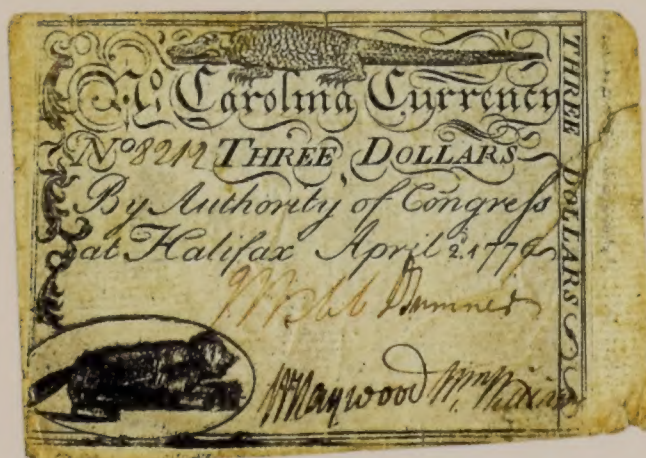 No. Carolina Currency
No 8212 THREE DOLLARS
By Authority of Congress
at Halifax April 2d. 1776
J Webb J Sumner
W Haywood Wm Williams
THREE DOLLARS